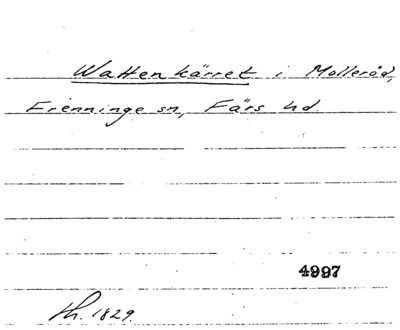 Wattenkärret i Molleröd,
Frenninge sn, Färs hd.
4997
th. 1829.